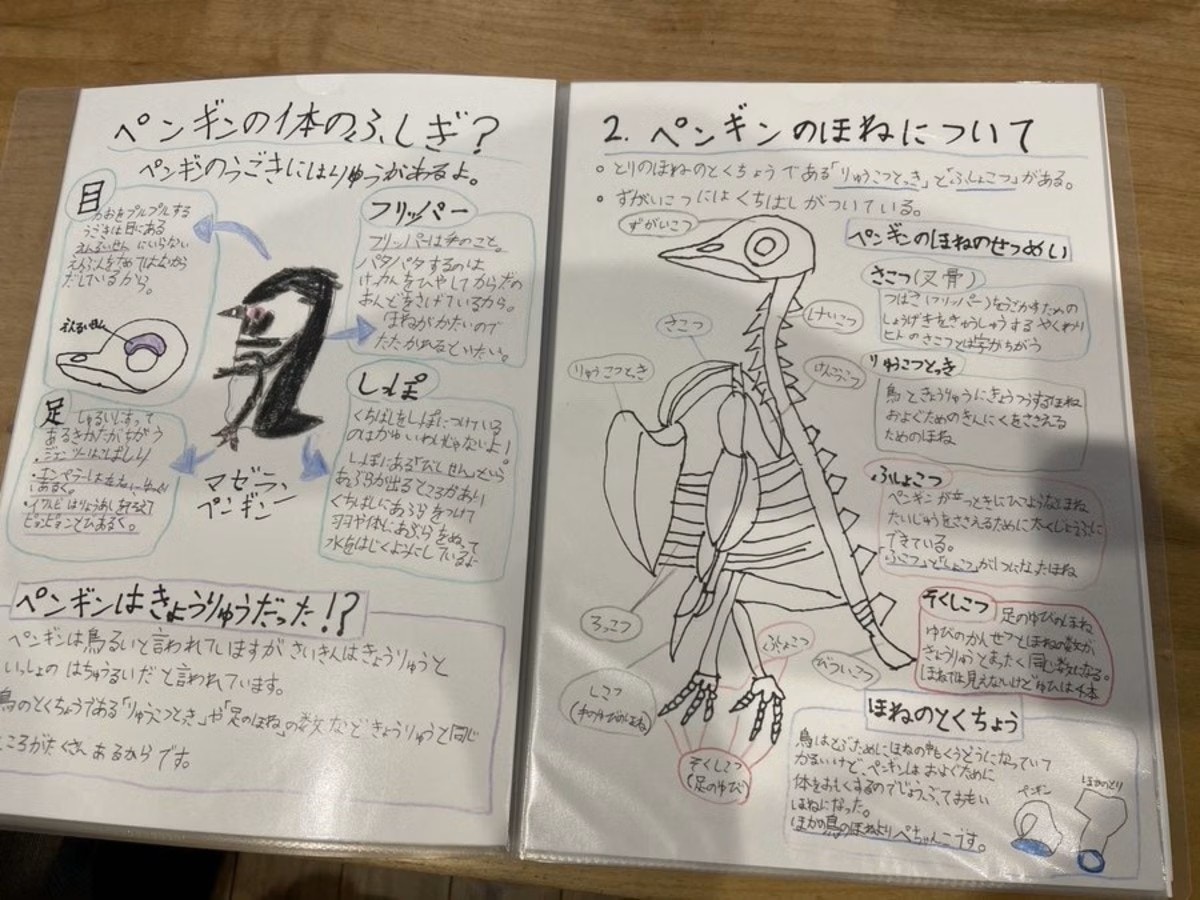 ペンギンの体のふしぎ?
ペンギのうごきにはりゆうがあるよ。
目
かおをプルプルする
うごきは目にある
えんるいせんにいらない
えんぶんをためてはなから
だしているから。
えんるいせん
フリッパー
フリッパーは手のこと。
パタパタするのは
けっかんをひやしてからだの
おんどをさげているから。
ほねがかたいので
たたかれるといたい。
足
しゅるいによって
あるきかたがちがう
あるく。
・イワトビはりょうあしをそろえて
ピョンピョンとびあるく。
マゼラン
ペンギン
しっぽ
くちばしをしっぽにつけている
のはかゆいわけじゃないよ!
しっぽにある「びしせん」という
あぶらが出るところがあり
くちばしにあぶらをつけて
羽や体にあぶらをぬって
水をはじくようにしているよ
ペンギンはきょうりゅうだった!?
ペンギンは鳥るいと言われていますがさいきんはきょうりゅうと
いっしょの はちゅうるいだと言われています。
鳥のとくちょうである「りゅうこつとっき」や「足のほね」の数など きょうりゅうと同じ
ところがたくさん あるからです。
2. ペンギンのほねについて
○ とりのほねのとくちょうである「りゅうこつとっき」と「ふしょこつ」がある。
○ ずがいこつにはくちばしがついている。
ずがいこつ
さこつ
けいこつ
りゅうこつとっき
けんこうこつ
ろっこつ
しこつ
(手のゆびのほね)
ふしょこつ
びついこつ
そくしこつ
(足のゆび)
ペンギンのほねのせつめい
さこつ(叉骨)
つばさ(フリッパー)をうごかすための
しょうげきをきゅうしゅうするやくわり
ヒトのさこつとは字がちがう
りゅうこつとっき
鳥ときょうりゅうにきょうつうするほね
およぐためのきんにくをささえる
ためのほね
ふしょこつ
ペンギンが立つときにひつようなほね
たいじゅうをささえるために太くじょうぶに
できている。
「ふこつ」と「しょこつ」が1つになったほね
そくしこつ
足のゆびのほね
ゆびのかんせつとほねの数が
きょうりゅうとまったく同じ数になる。
ほねでは見えないけどゆびは4本
ほねのとくちょう
鳥はとぶためにほねの中もくうどうになっていて
かるいけど、ペンギンは およぐために
体をおもくするのでじょうぶでおもい
ほねになった。
ほかの鳥のほねよりぺちゃんこです。
ペンギン
ほかのとり